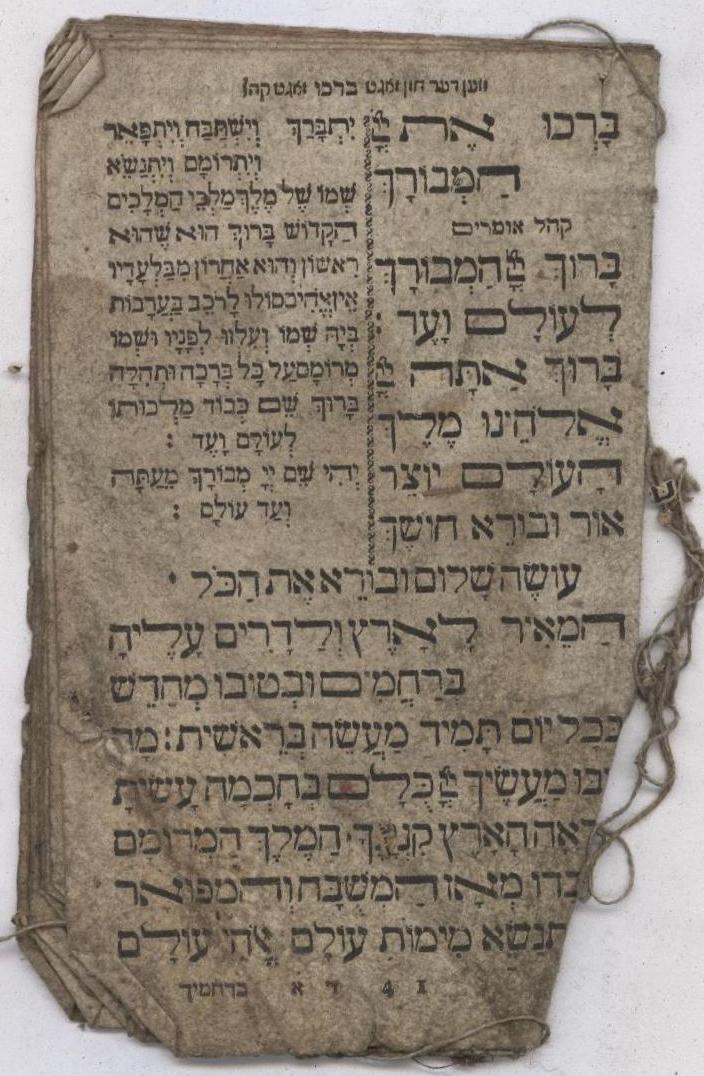 ווען דער חזן זאגט ברכו זאגט קהל
בָּרְכוּ אֶת יְיָ
הַמְבוֹרָךְ
קהל אומרים
בָּרוּךְ יְיָ הַמְבוֹרָךְ
לְעוֹלָם וָעֶד :
בָּרוּךְ אַתָּה יְיָ
אֱלֹהֵינוּ מֶלֶךְ
הָעוֹלָם יוֹצֵר
אוֹר וּבוֹרֵא חוֹשֶׁךְ
יִתְבָּרַךְ וְיִשְׁתַּבַּח וְיִתְפָּאֵר
וְיִתְרוֹמָם וְיִתְנַשֵּׂא
שְׁמוֹ שֶׁל מֶלֶךְ מַלְכֵי הַמְּלָכִים
הַקָּדוֹשׁ בָּרוּךְ הוּא שֶׁהוּא
רִאשׁוֹן וְהוּא אַחֲרוֹן מִבַּלְעָדָיו
אֵין אֱלֹהִים סוֹלּוּ לָרֹכֵב בָּעֲרָבוֹת
בְּיָהּ שְׁמוֹ וְעִלְזוּ לְפָנָיו וּשְׁמוֹ
מְרוֹמָם עַל כָּל בְּרָכָה וּתְהִלָּה
בָּרוּךְ שֵׁם כְּבוֹד מַלְכוּתוֹ
לְעוֹלָם וָעֶד :
יְהִי שֵׁם יְיָ מְבוֹרָךְ מֵעַתָּה
וְעַד עוֹלָם :
עוֹשֶׂה שָׁלוֹם וּבוֹרֵא אֶת הַכֹּל ·
הַמֵּאִיר לָאָרֶץ וְלַדָּרִים עָלֶיהָ
בְּרַחֲמִים וּבְטִיבוֹ מְחַדֵּשׁ
בְּכָל יוֹם תָּמִיד מַעֲשֵׂה בְרֵאשִׁית : מָה
רַבּוּ מַעֲשֶׂיךָ יְיָ כֻּלָּם בְּחָכְמָה עָשִׂיתָ
הָאָרֶץ קִנְיָנֶךָ · הַמֶּלֶךְ הַמְרוֹמָם
מֵאָז הַמְשֻׁבָּח וְהַמְפוֹאָר
מִימוֹת עוֹלָם אֱלֹהֵי עוֹלָם
1 ד 4 א ברחמיך